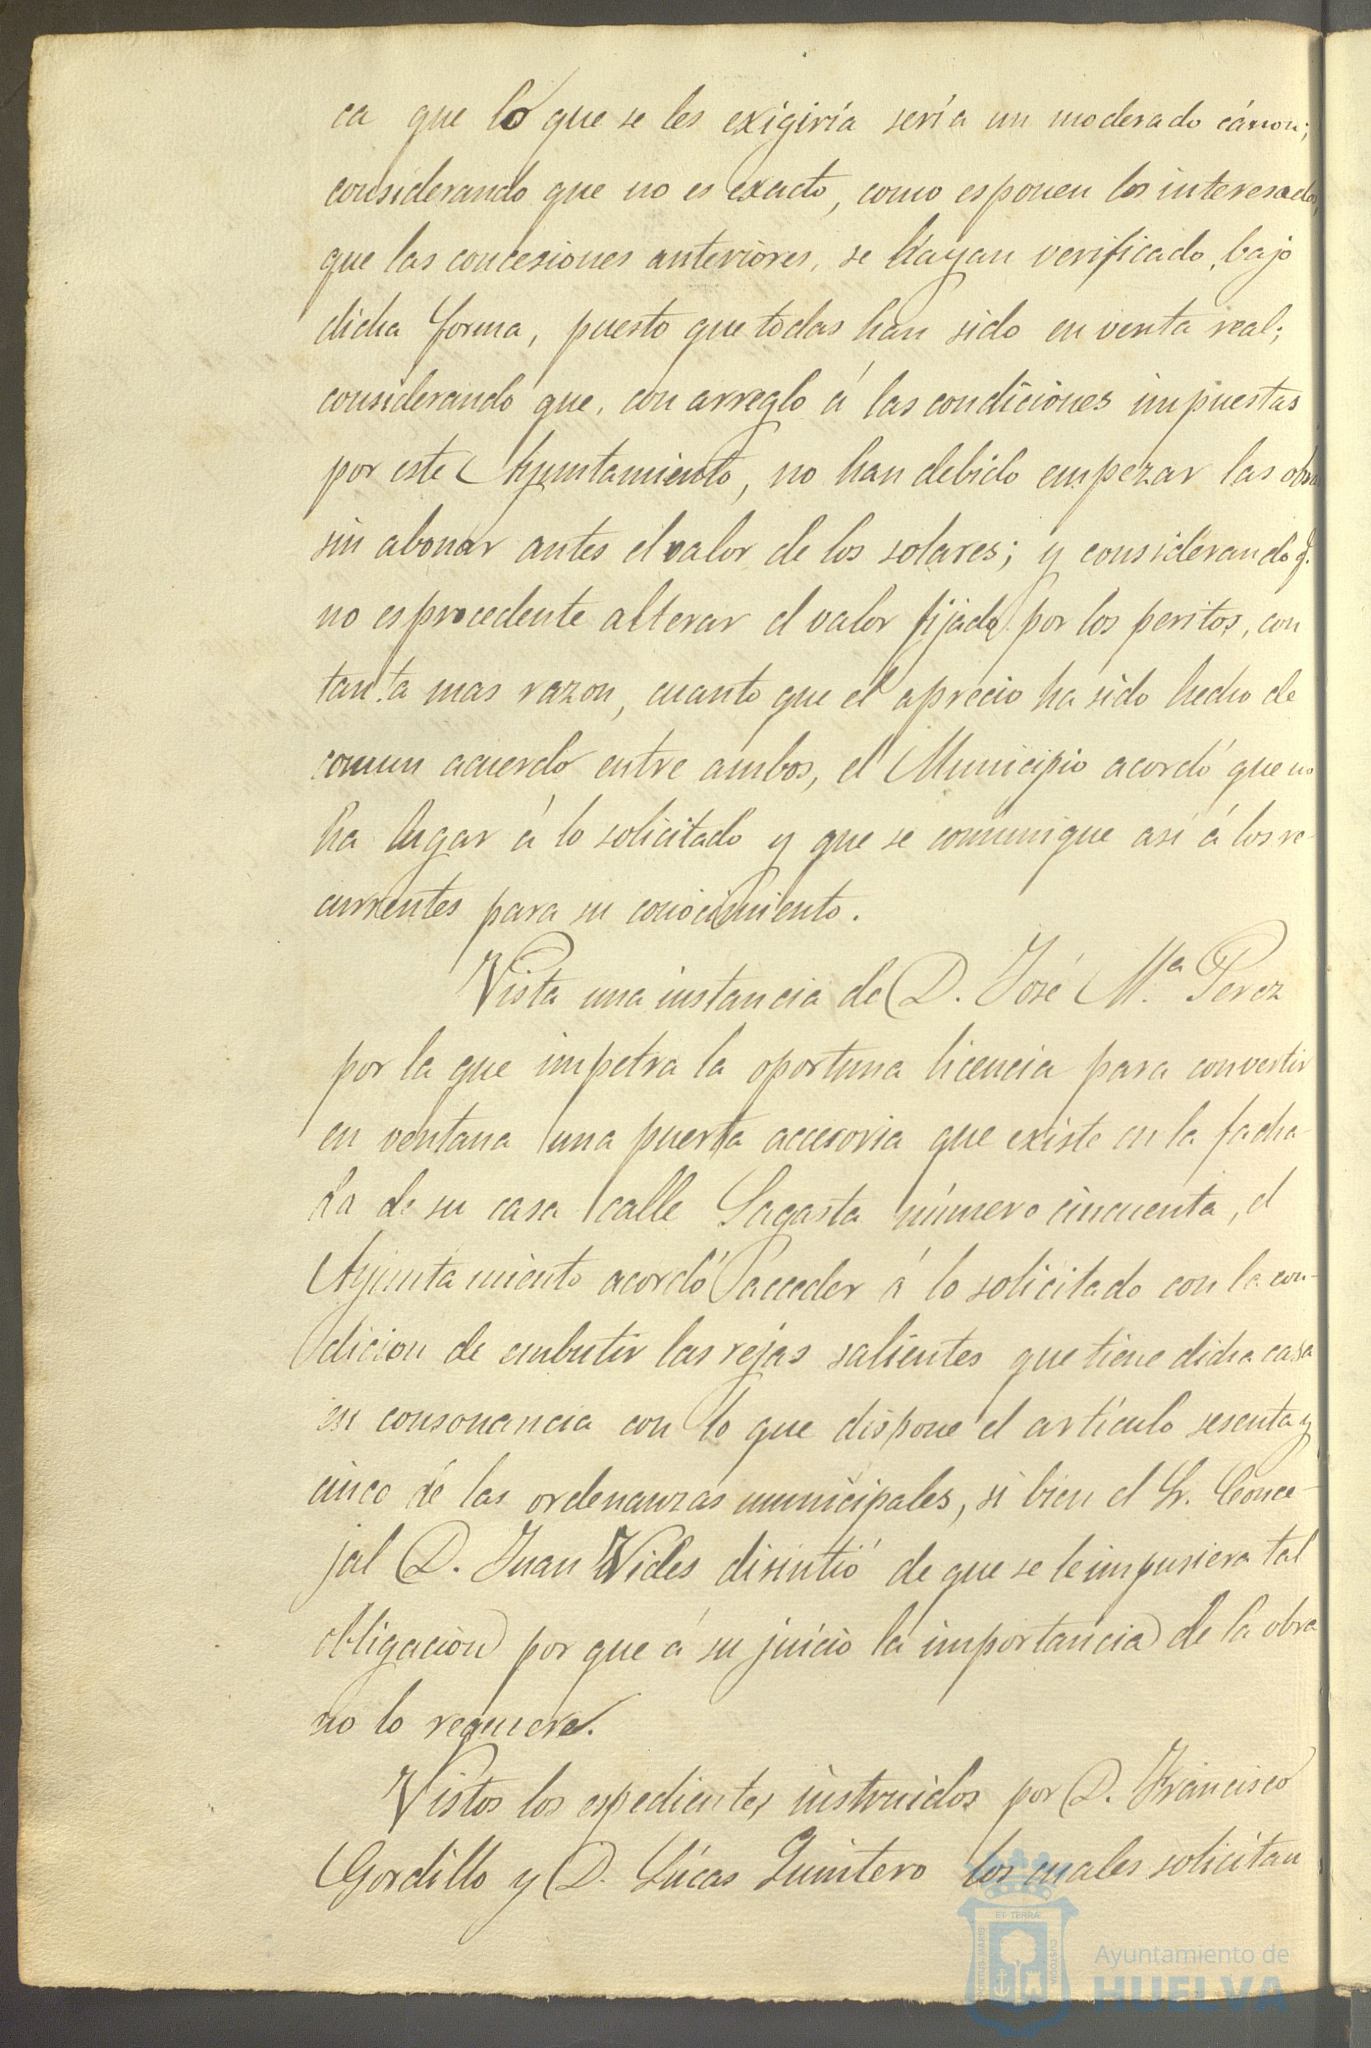 ca que lo que se les exigiría sería un moderado cánon;
considerando que no es exacto, como esponen los interesados,
que las concesiones anteriores, se hayan verificado, bajo
dicha forma, puesto que todas han sido en venta real;
considerando que, con arreglo á las condiciones impuestas
por este Ayuntamiento, no han debido empezar las obras
sin abonar antes el valor de los solares; y considerando q.
no es procedente alterar el valor fijado por los peritos, con
tanta mas razon, cuanto que el aprecio ha sido hecho de
comun acuerdo entre ambos, el Municipio acordó que no
ha lugar á lo solicitado y que se comunique así á los re-
currentes para su conocimiento.
Vista una instancia de D. José Mª Perez
por la que impetra la oportuna licencia para convertir
en ventana una puerta accesoria que existe en la facha-
da de su casa calle Sagasta número cincuenta, el
Ayuntamiento acordó acceder á lo solicitado con la con-
dicion de embutir las rejas salientes que tiene dicha casa
en consonancia con lo que dispone el artículo sesenta y
cinco de las ordenanzas municipales, si bien el Sr. Conce-
jal D. Juan Vides disintió de que se le impusiera tal
obligacion por que á su juicio la importancia de la obra
no lo requiere.
Vistos los espedientes instruidos por D. Francisco
Gordillo y D. Lúcas Quintero los cuales solicitan
Ayuntamiento de
HUELVA